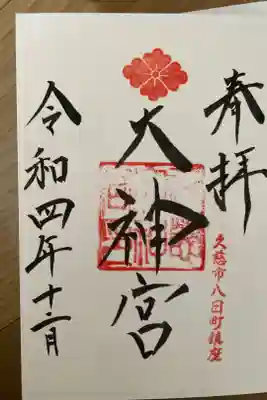 奉拝
久慈市八日町鎮座
大神宮
令和四年十二月